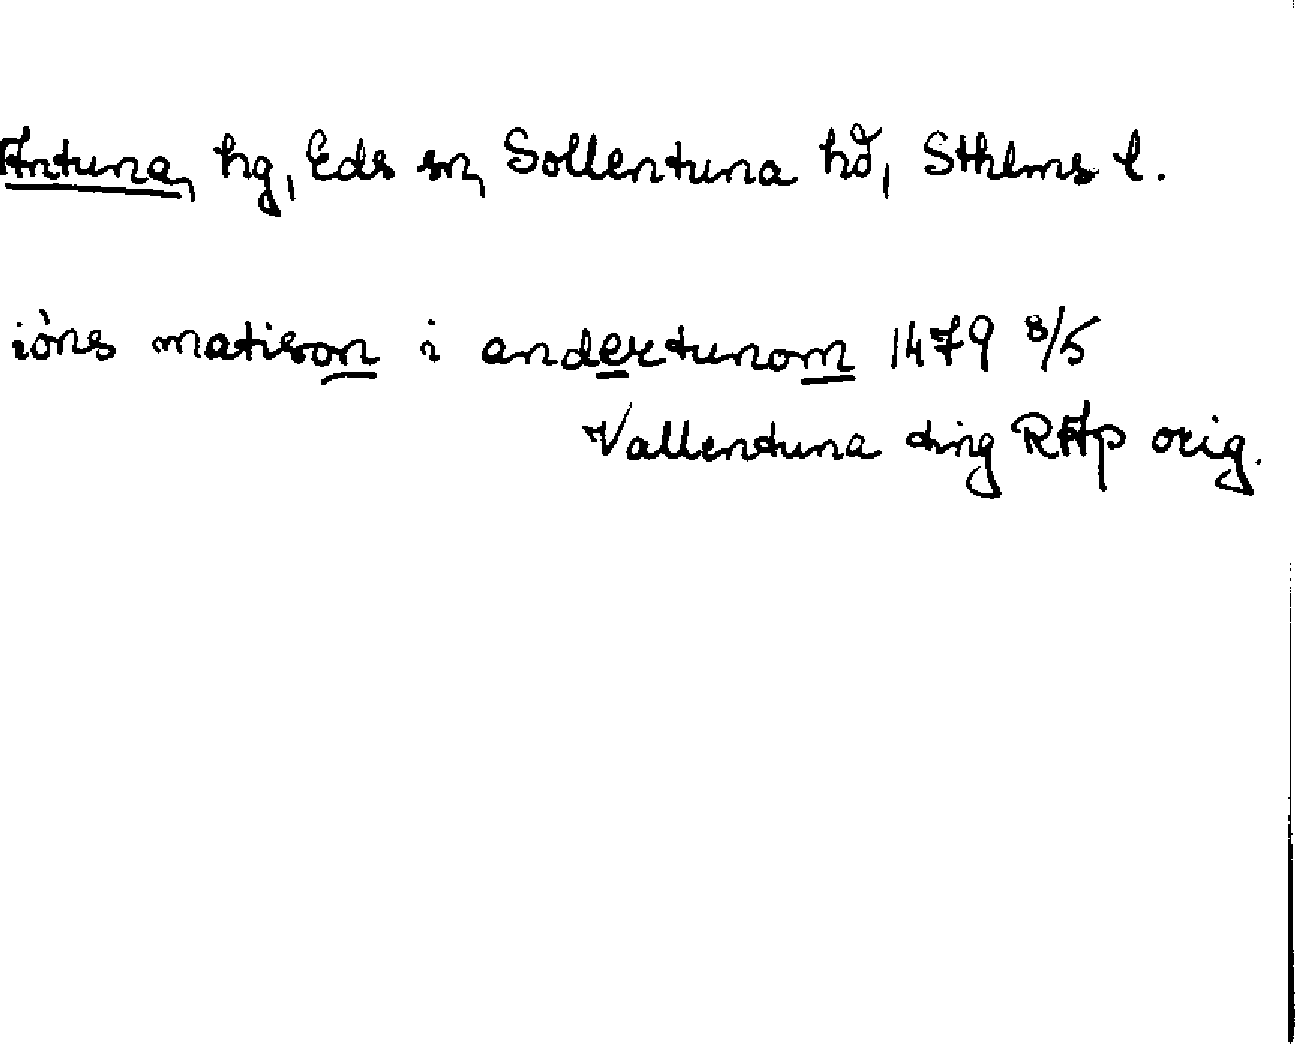 Antuna, hg, Eds sn, Sollentuna hd, Sthlms l.
iòns matison i andertunom 1479 8/5
Vallentuna ting RAp orig.